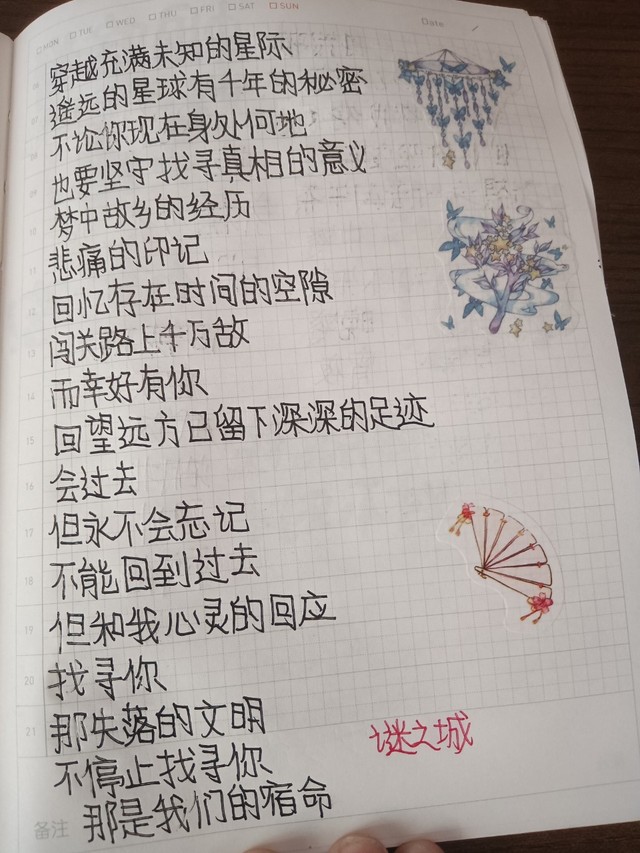 MON TUE WED THU FRI SAT SUN
Date
穿越充满未知的星际
遥远的星球有千年的秘密
不论你现在身处何地
也要坚守找寻真相的意义
梦中故乡的经历
悲痛的印记
回忆存在时间的空隙
闯关路上千万故
而幸好有你
回望远方已留下深深的足迹
会过去
但永不会忘记
不能回到过去
但和我心灵的回应
找寻你
那失落的文明
谜之城
不停止找寻你
备注 那是我们的宿命